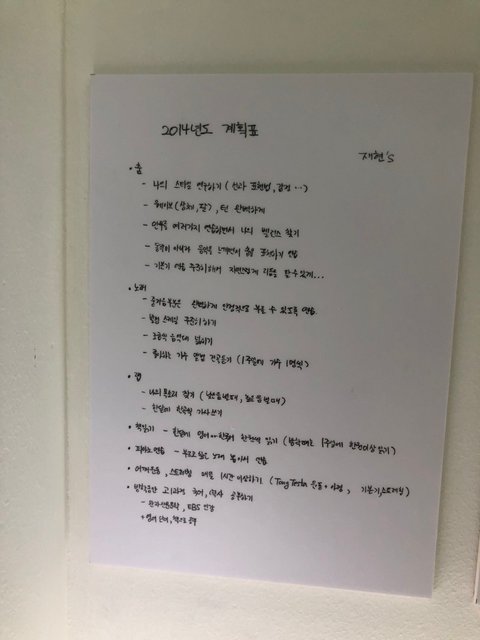 2014년도 계획표
재현's
· 춤
- 나의 스타일 연구하기 (선과 표현법, 감정 …)
- 웨이브 (상체, 팔), 턴 완벽하게
- 안무를 여러가지 연습하면서 나의 밸런스 찾기
- 음악의 이해와 음악을 느끼면서 춤을 표현하기 연습
- 기본기 연습 꾸준히해서 자연스럽게 리듬을 탈 수 있게...
· 노래
- 완벽하게 안정적으로 부를 수 있도록 연습.
- 발성 스케일 꾸준히 하기
- 조금씩 음역대 넓히기
- 좋아하는 가수 창법 연구하기 (1주일에 가수 1명씩)
· 랩
- 나의 목소리 찾기 (낮은음랩때, 높은음랩때)
- 한달에 한곡씩 가사쓰기
· 책읽기 - 한달에 한권씩 읽기 (방학때는 1주일에 한권이상 읽기)
· 피아노연습 - 부르고 싶은 노래 뽑아서 연습
· 어깨운동, 스트레칭 매일 1시간 이상하기 (Tony Testa 운동 + 아령, 기본기, 스트레칭)
· 고1과정 국어, 역사 공부하기
- EBS 인강
+ 영어 단어, 책으로 공부